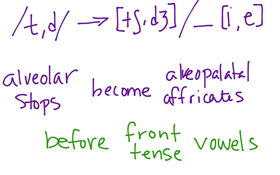 /t,d/ → [tʃ,dʒ]/_ [i,e]
alveolar stops become alveopalatal affricates
before front tense vowels